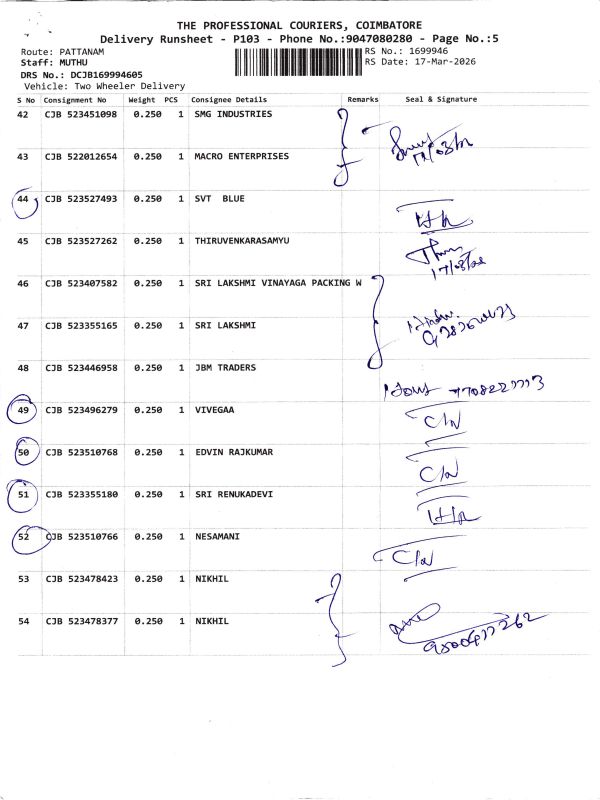 THE PROFESSIONAL COURIERS, COIMBATORE
Delivery Runsheet - P103 - Phone No.:9047080280 - Page No.:5
Route: PATTANAM RS No.: 1699946
Staff: MUTHU RS Date: 17-Mar-2026
DRS No.: DCJB169994605
Vehicle: Two Wheeler Delivery
S No Consignment No Weight PCS Consignee Details Remarks Seal & Signature
42 CJB 523451098 0.250 1 SMG INDUSTRIES
43 CJB 522012654 0.250 1 MACRO ENTERPRISES
44 CJB 523527493 0.250 1 SVT BLUE
45 CJB 523527262 0.250 1 THIRUVENKARASAMYU
46 CJB 523407582 0.250 1 SRI LAKSHMI VINAYAGA PACKING W
47 CJB 523355165 0.250 1 SRI LAKSHMI
48 CJB 523446958 0.250 1 JBM TRADERS
49 CJB 523496279 0.250 1 VIVEGAA C/N
50 CJB 523510768 0.250 1 EDVIN RAJKUMAR C/N
51 CJB 523355180 0.250 1 SRI RENUKADEVI
52 CJB 523510766 0.250 1 NESAMANI C/N
53 CJB 523478423 0.250 1 NIKHIL
54 CJB 523478377 0.250 1 NIKHIL